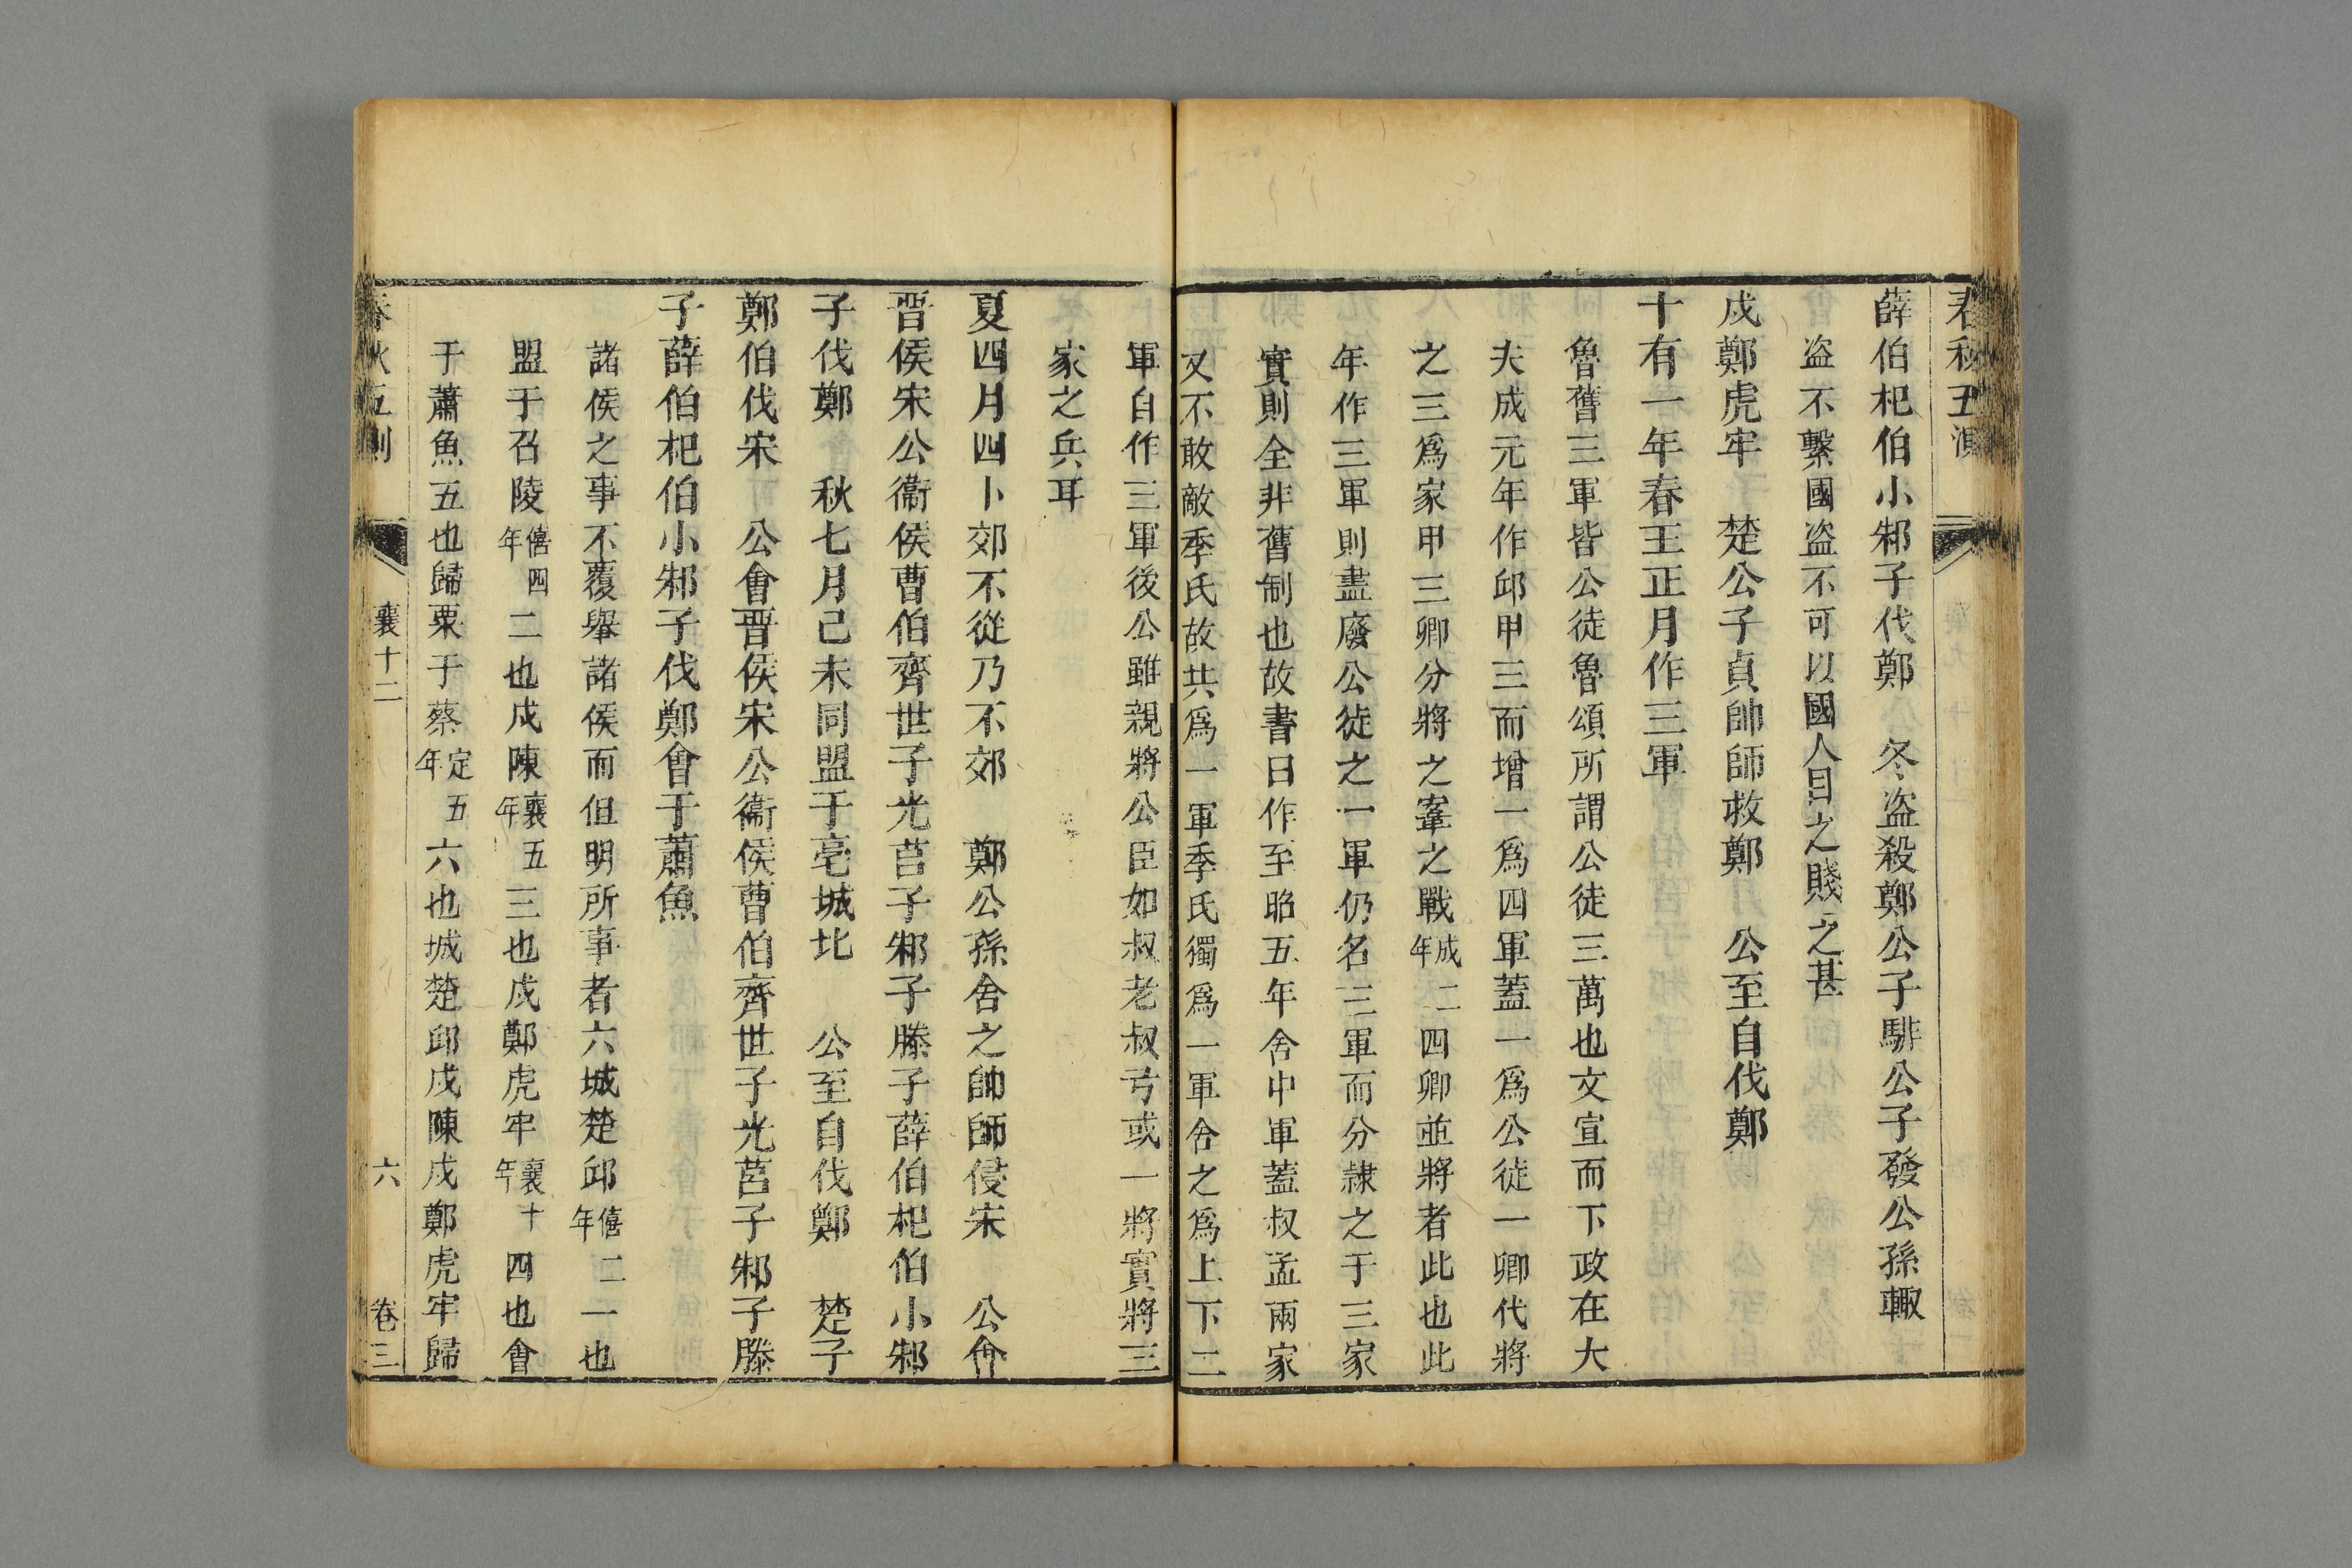 春秋五測
薛伯杞伯小邾子伐鄭　冬盜殺鄭公子騑公子發公孫輒
盜不繫國盜不可以國人目之賤之甚
戍鄭虎牢　楚公子貞帥師救鄭　公至自伐鄭
十有一年春王正月作三軍
魯舊三軍皆公徒魯頌所謂公徒三萬也文宣而下政在大
夫成元年作邱甲三而增一爲四軍蓋一爲公徒一卿代將
之三爲家甲三卿分將之鞌之戰成二年四卿並將者此也此
年作三軍則盡廢公徒之一軍仍名三軍而分隷之于三家
實則全非舊制也故書曰作至昭五年舍中軍蓋叔孟兩家
又不敢敵季氏故共爲一軍季氏獨爲一軍舍之爲上下二
軍自作三軍後公雖親將公臣如叔老叔弓或一將實將三
家之兵耳
夏四月四卜郊不從乃不郊　鄭公孫舍之帥師侵宋　公會
晉侯宋公衞侯曹伯齊世子光莒子邾子滕子薛伯杞伯小邾
子伐鄭　秋七月己未同盟于亳城北　公至自伐鄭　楚子
鄭伯伐宋　公會晉侯宋公衞侯曹伯齊世子光莒子邾子滕
子薛伯杞伯小邾子伐鄭會于蕭魚
諸侯之事不覆舉諸侯而但明所事者六城楚邱僖二年一也
盟于召陵僖四年二也戍陳襄五年三也戍鄭虎牢襄十年四也會
于蕭魚五也歸粟于蔡定五年六也城楚邱戍陳戍鄭虎牢歸
春秋五測
襄十二
六
卷三